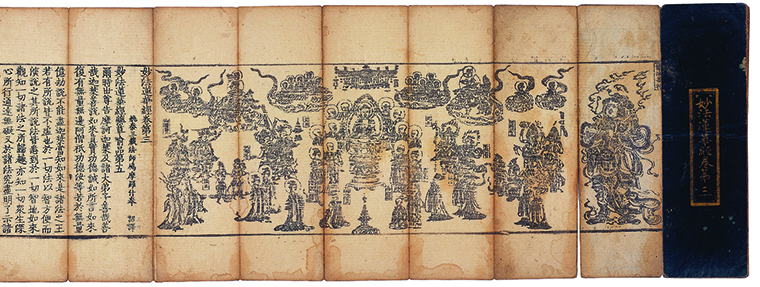 妙法蓮華經卷第三
妙法蓮華經卷第三
姚秦三藏法師鳩摩羅什奉 詔譯
妙法蓮華經藥草喻品第五
爾時世尊告摩訶迦葉及諸大弟子善哉善
哉迦葉善說如來真實功德誠如所言如來
復有無量無邊阿僧祇功德汝等若於無量
億劫說不能盡迦葉當知如來是諸法之王
若有所說皆不虛也於一切法以智方便而
演說之其所說法皆悉到於一切智地如來
觀知一切諸法之所歸趣亦知一切衆生深
心所行通達無礙又於諸法究盡明了示諸